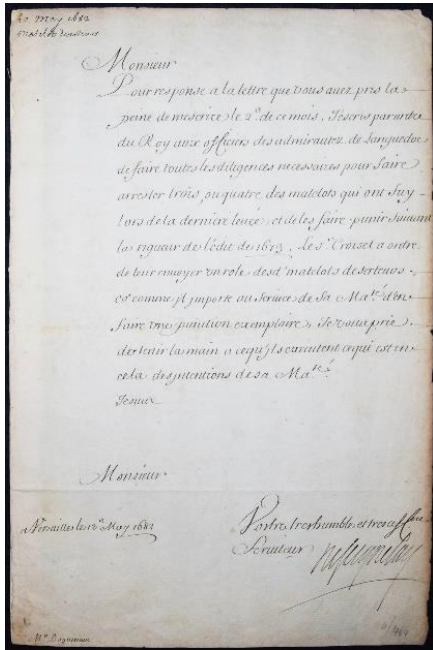 20 may 1682
Monsieur
Pour response a la lettre que vous avez pris la
peine de mescrire le 2e. de ce mois, J'escris par ordre
du Roy aux officiers des admirautez de Languedoc
de faire toutes les diligences necessaires pour faire
arrester trois, ou quatre des matelots qui ont fuy
lors de la derniere levée, et de les faire punir suivant
la rigueur de l'edit de 1673, le Sr. Croiset a ordre
de leur envoyer un role desd. matelots deserteurs.
et comme jl importe au service de Sa Maté. d'en
faire une punition exemplaire, Je vous prie
de tenir la main a ce qu'jls executent ce qui est en
cela des jntentions de sa Maté.
Je suis
Monsieur
Vostre tres humble et tres aff.
a Versailles le may 1682
Serviteur
Seignelay